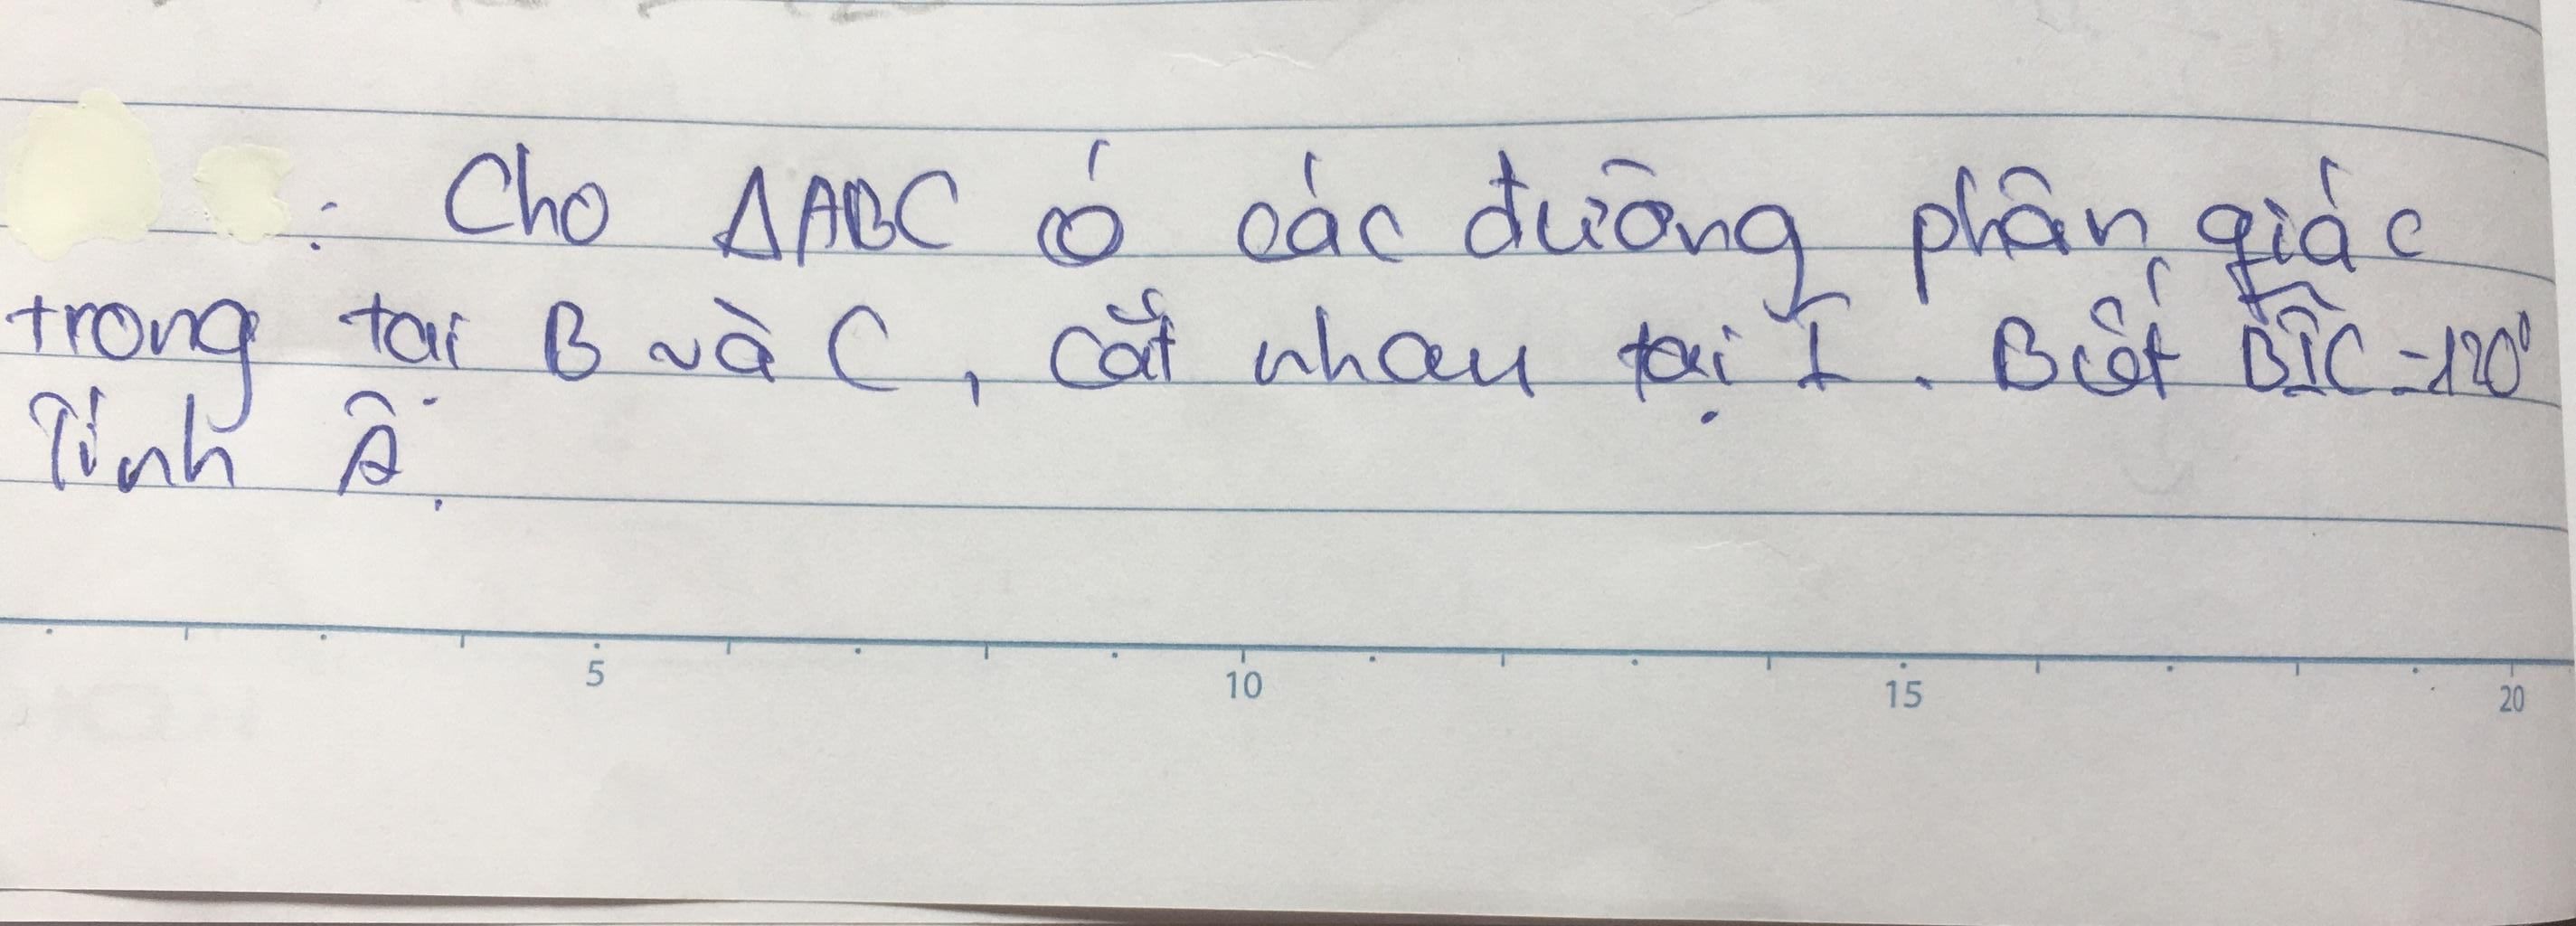 : Cho ΔABC có các đường phân giác
trong tại B và C, cắt nhau tại I. Biết BIC = 120°
Tính Â.
5 10 15 20